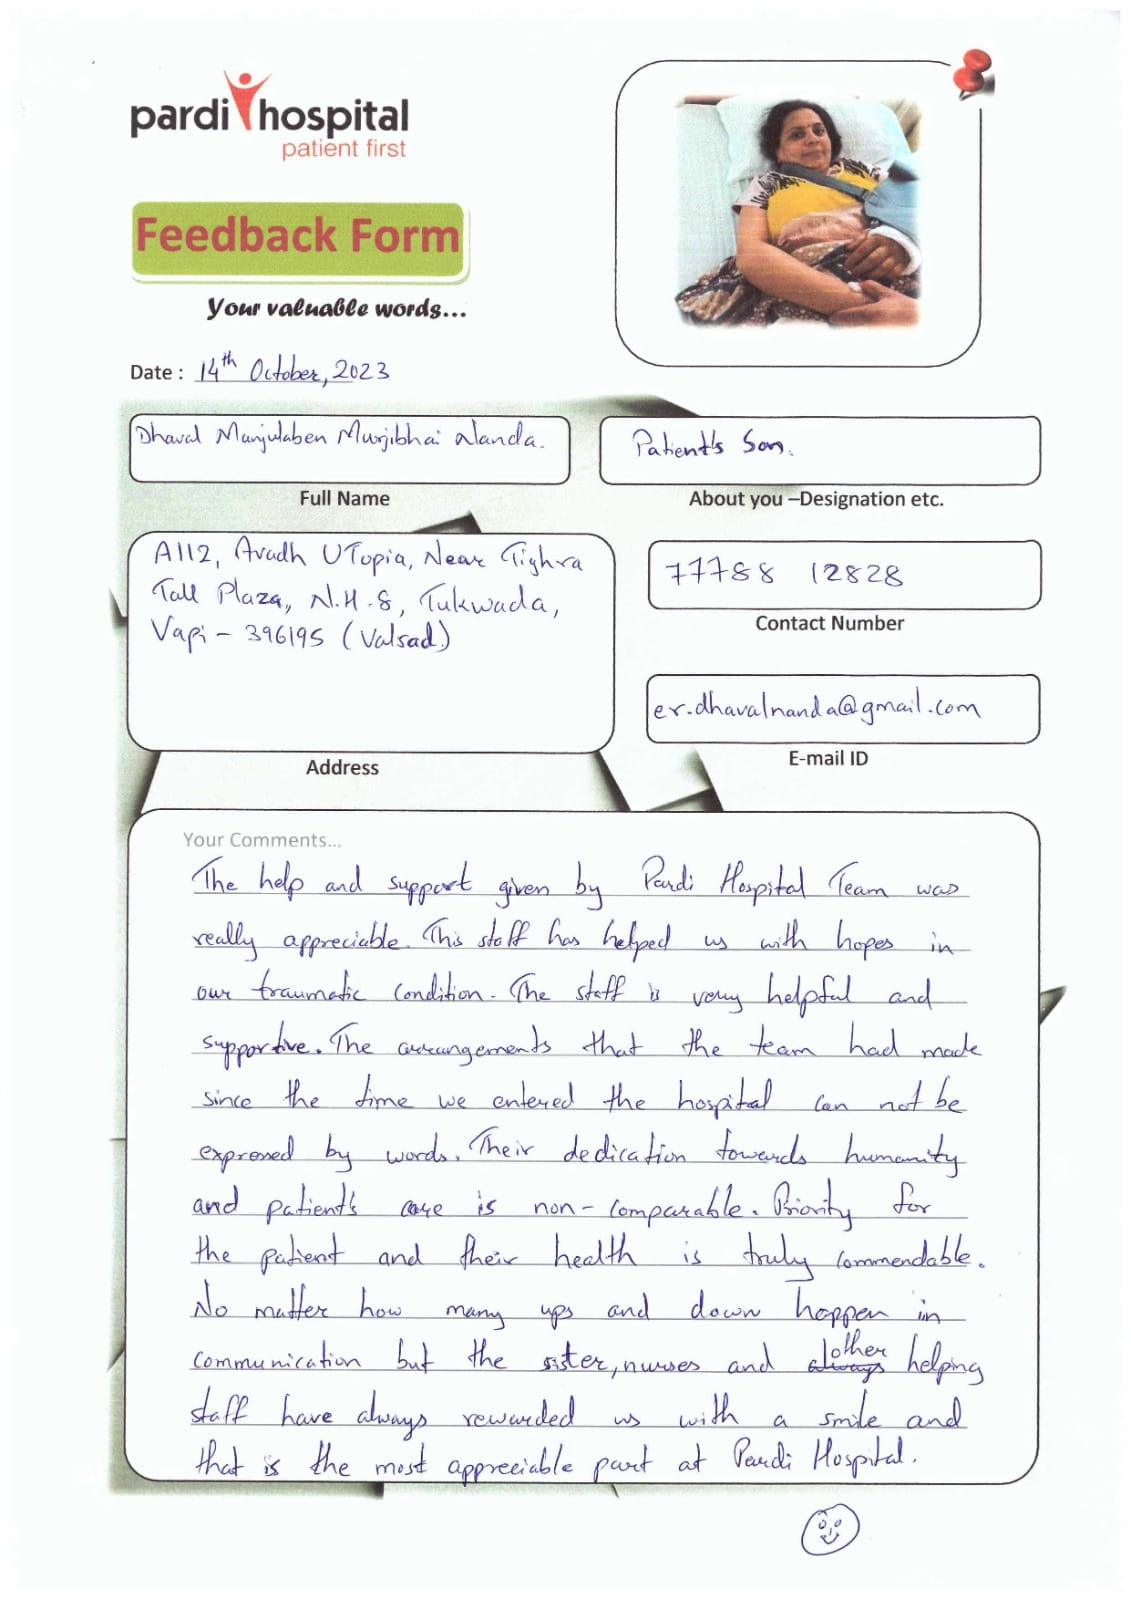 pardi hospital
patient first
Feedback Form
Your valuable words...
Date : 14th October, 2023
Dhaval Manjulaben Murjibhai Nanda.
Full Name
Patient's Son.
About you –Designation etc.
A112, Avadh UTopia, Near Tighra
Tall Plaza, N.H-8, Tukwada,
Vapi - 396195 (Valsad)
Address
77788 12828
Contact Number
er.dhavalnanda@gmail.com
E-mail ID
Your Comments...
The help and support given by Pardi Hospital Team was
really appreciable. This staff has helped us with hopes in
our traumatic condition. The staff is very helpful and
supportive. The arrangements that the team had made
since the time we entered the hospital can not be
expressed by words. Their dedication towards humanity
and patient's care is non-comparable. Priority for
the patient and their health is truly commendable.
No matter how many ups and down happen in
communication but the sister, nurses and always other helping
staff have always rewarded us with a smile and
that is the most appreciable part at Pardi Hospital.